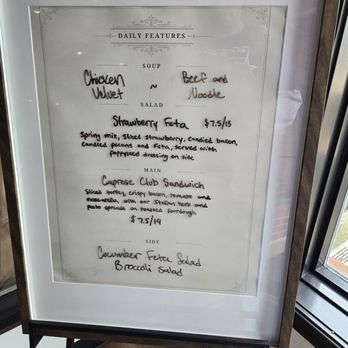 DAILY FEATURES
SOUP
Chicken Velvet ~ Beef and Noodle
SALAD
Strawberry Feta $7.5/13
Spring mix, sliced strawberry, candied bacon,
candied pecans and feta, served with
poppyseed dressing on side
MAIN
Caprese Club Sandwich
Sliced turkey, crispy bacon, tomato and
mozzarella, with our Italian herb and
pesto spread on toasted sourdough
$7.5/14
SIDE
Cucumber Feta Salad
Broccoli Salad